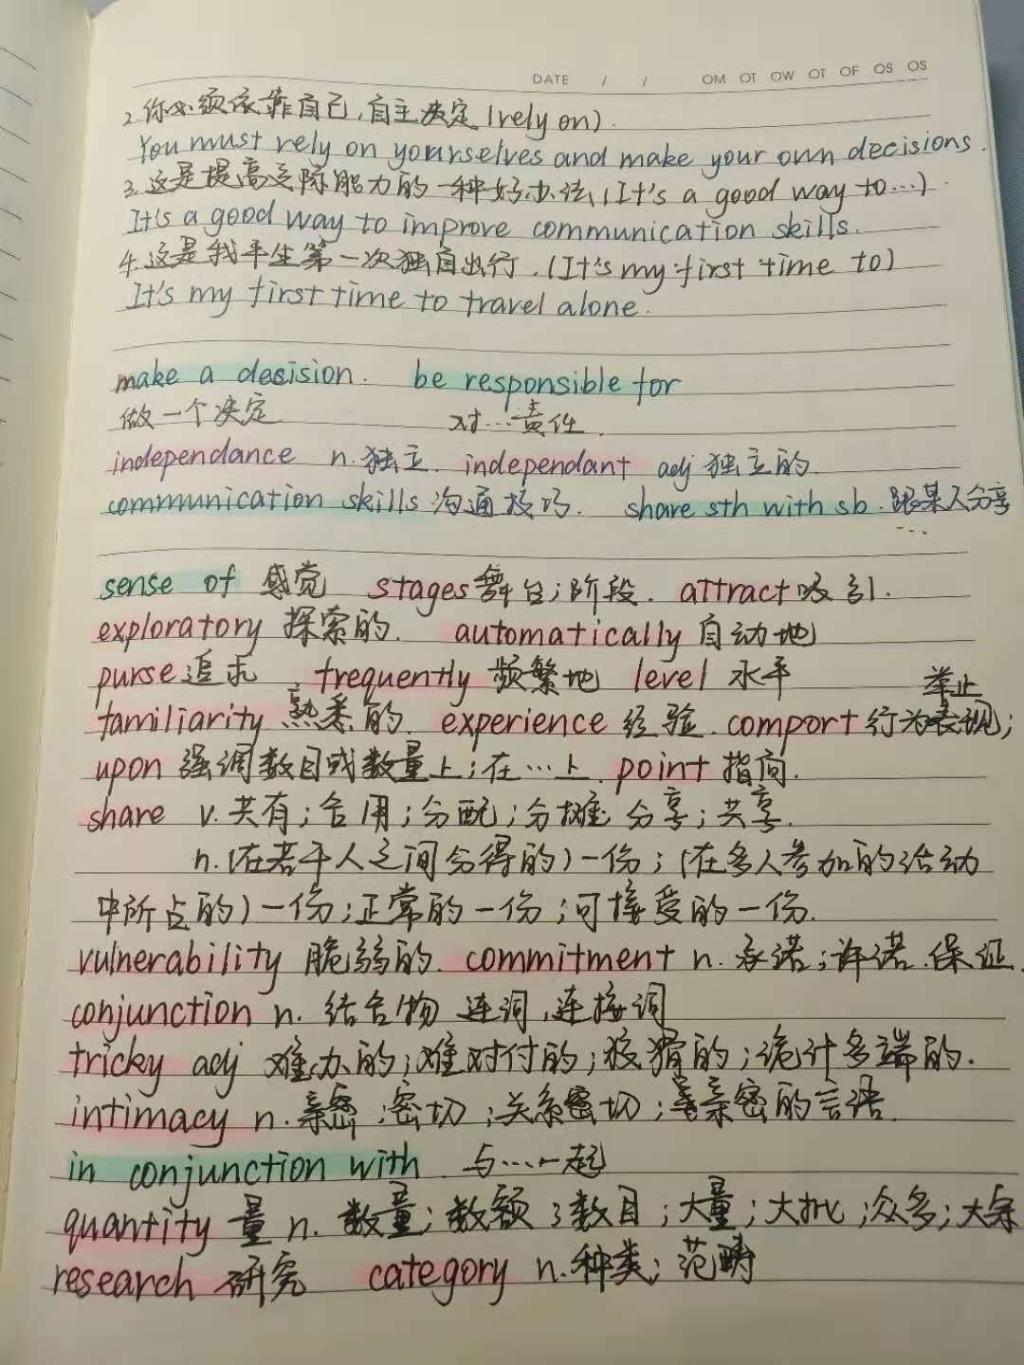 DATE / / OM OT OW OT OF OS OS
2. 你必须依靠自己,自主决定(rely on).
You must rely on yourselves and make your own decisions.
3. 这是提高交际能力的一种好办法(It's a good way to...)
It's a good way to improve communication skills.
4. 这是我平生第一次独自出行.(It's my first time to)
It's my first time to travel alone.
make a decision. be responsible for
做一个决定 对...责任.
independance n.独立. independant adj 独立的
communication skills 沟通技巧. share sth with sb. 跟某人分享
...
sense of 感觉 stages舞台;阶段. attract吸引.
exploratory 探索的. automatically 自动地
purse追求 frequently 频繁地 level 水平
举止
familiarity 熟悉的. experience 经验. comport 行为表现;
upon 强调数目或数量上;在...上. point 指向.
share v.共有;合用;分配;分摊;分享;共享.
n.(在若干人之间分得的)一份;(在多人参加的活动
中所占的)一份;正常的一份;可接受的一份.
vulnerability 脆弱的. commitment n.承诺;许诺.保证.
conjunction n. 结合物 连词,连接词
tricky adj 难办的;难对付的;狡猾的;诡计多端的.
intimacy n.亲密;密切;关系密切;亲密的言语.
in conjunction with 与...一起
quantity 量 n. 数量;数额;数目;大量;大批;众多;大宗
research 研究 category n.种类;范畴